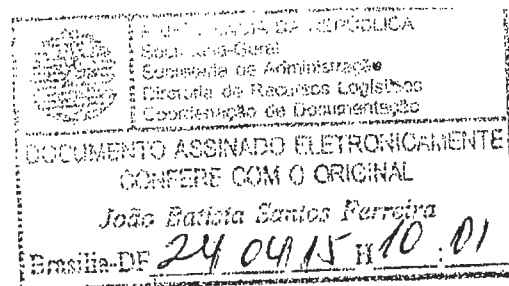 PRESIDÊNCIA DA REPÚBLICA
Secretaria-Geral
Secretaria de Administração
Diretoria de Recursos Logísticos
Coordenação de Documentação
DOCUMENTO ASSINADO ELETRONICAMENTE
CONFERE COM O ORIGINAL
João Batista Santos Ferreira
Brasília-DF 24 04/15 H 10:01